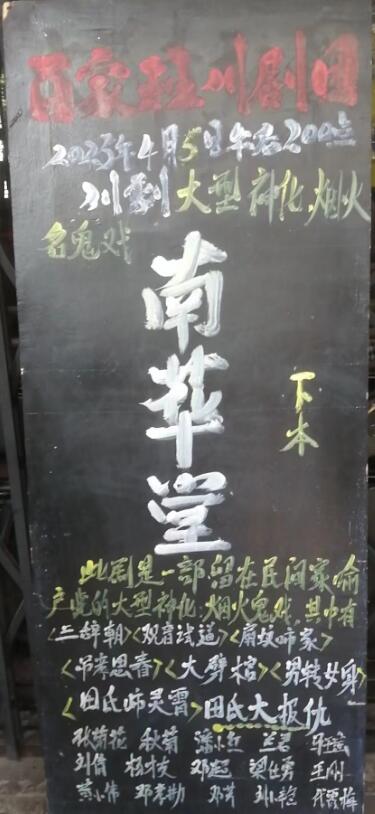 百家班川剧团
2023年4月5日午后2:00点
川剧大型神化.烟火
名鬼戏
南华堂
下本
此剧是一部留在民间家喻
户晓的大型神化.烟火鬼戏.其中有
<三辞朝><观音试道><扇坟师家>
<吊孝思春><大劈棺><男转女身>
<田氏哭灵霄>田氏大报仇
秋菊花 秋菊 兰君
刘倩 杨枝 邓超 梁仕勇 王刚
黄小伟 邓孝勋 邓芳 刘小艳